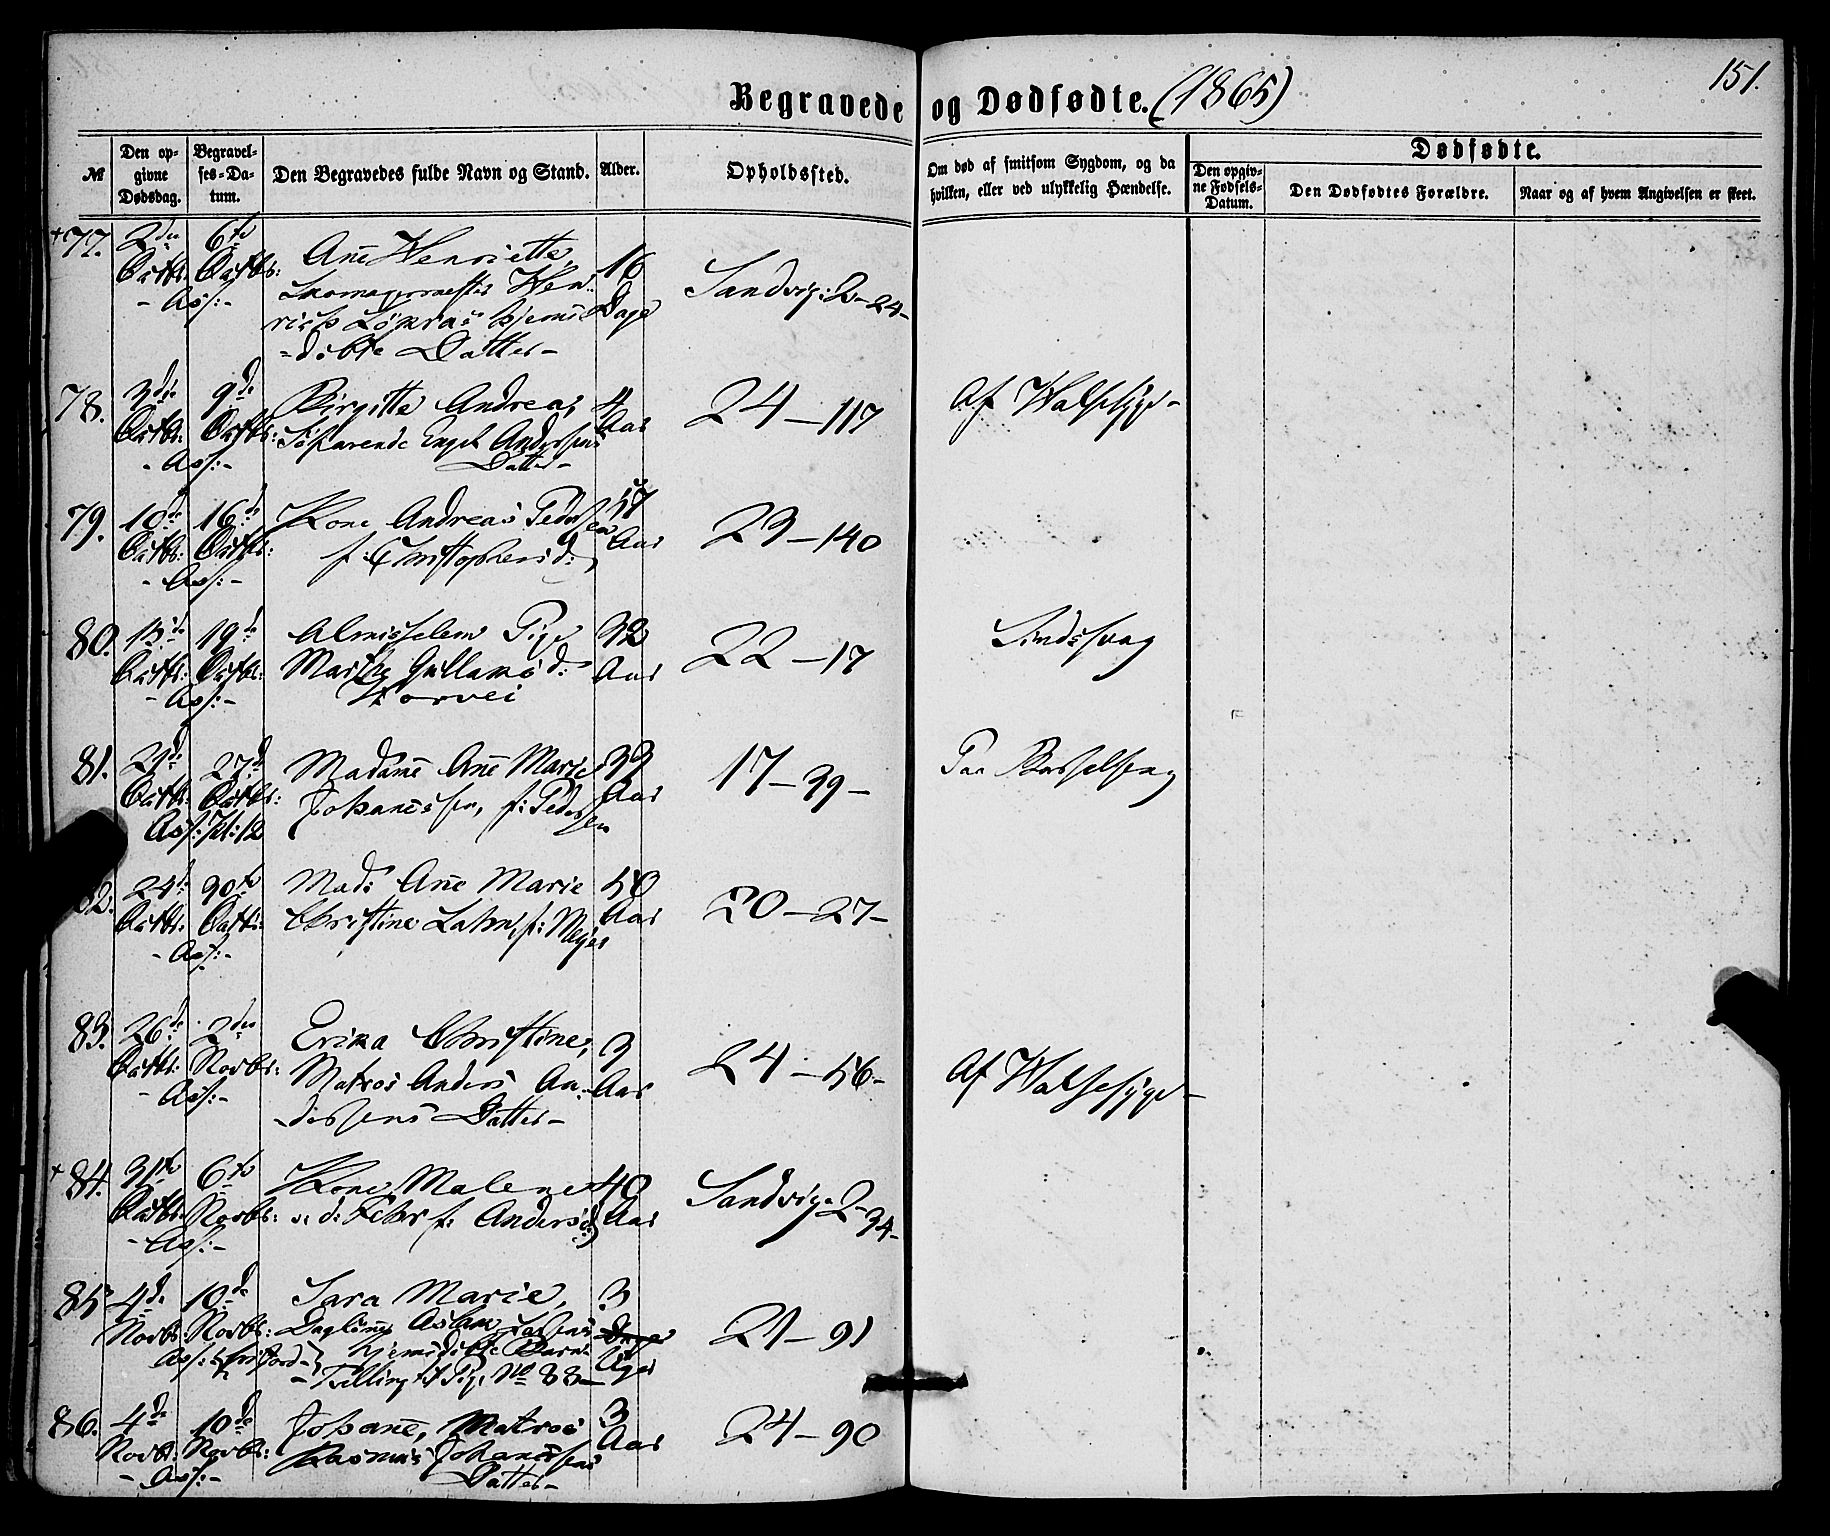 151.
Begravede og Dødfødte. (1865)
№
Den opgivne Dødsdag.
Begravelses-Datum.
Den Begravedes fulde Navn og Stand.
Alder.
Opholdssted.
Om død af smitsom Sygdom, og da
hvilken, eller ved ulykkelig Hændelse.
Dødfødte.
Den opgivne Fødsels-Datum.
Den Dødfødtes Forældre.
Naar og af hvem Angivelsen er skeet.
+77. 2den 6te Ane Henriette, 16
Octbr: Octbr: Skomagermester Hen- Dage Sandvig: 2-24-
- Ass:- rich hjemme-
-døbte Datter-
78. 3die 9de Birgitte Andrea, 4 24-117
Octbr: Octbr: Søfarende Engel Andersens Aar
- Ass:- Datter-
Af Halssyge-
79. 10de 16de Kone Andreas Pedersen 57 23-140
Octbr: Octbr: f: Christophersd: Aar
- Ass:-
80. 13de 19de Almisselem Pige 32 22-17
Octbr: Octbr: Gullamsd: Aar
- Ass:- Norvei
Sindssvag
81. 21de 27de Madame Ane Marie 39 17-39-
Octbr: Octbr: Johannessen, f: Pedersen Aar
Ass: Kl: 12
Paa Barselseng
82. 24de 30te Mad: Ane Marie 50 20-27-
Octbr: Octbr: Christine Lahn, f: Meyer Aar
- Ass:-
83. 26de 2den Erika Christine, 3 24-56-
Octbr: Novbr: Matros Anders An- Aar
- Ass:- -dersens Datter-
Af Halssyge-
+84. 31te 6te Kone Malene 40 Sandvig: 2-34-
Octbr: Novbr: v. d: Fehr f: Andersd: Aar
- Ass:-
85 4de 10de Sara Marie, 3 21-91
Novbr: Novbr: Daglønner Aslak Larsens Dage
Ass: hjemmedøbte Barn Uger
-Tvilling til Pige No 88-
86. 4de 10de Johanne, Matros 3 24-90
Novbr: Novbr: Rasmus Johannessens Aar
- Ass:- Datter-